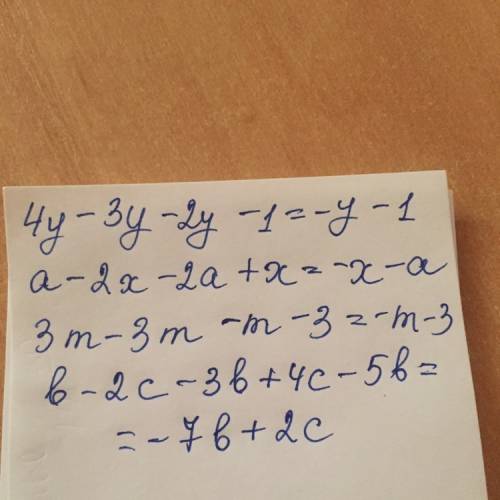 4y - 3y - 2y - 1 = -y - 1
a - 2x - 2a + x = -x - a
3m - 3m - m - 3 = -m - 3
в - 2c - 3в + 4c - 5в =
= -7в + 2c